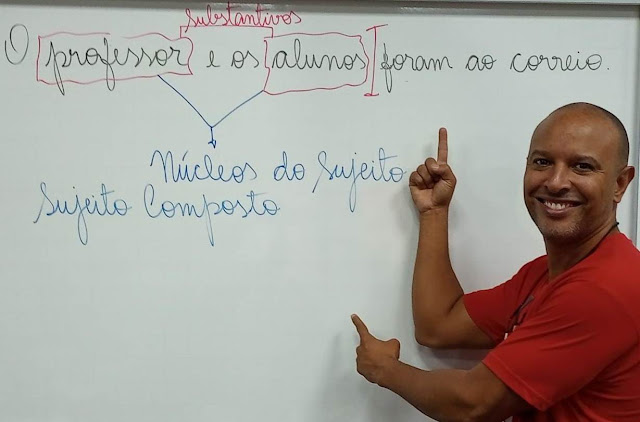 substantivos
O professor e os alunos foram ao correio.
Núcleos do Sujeito
Sujeito Composto